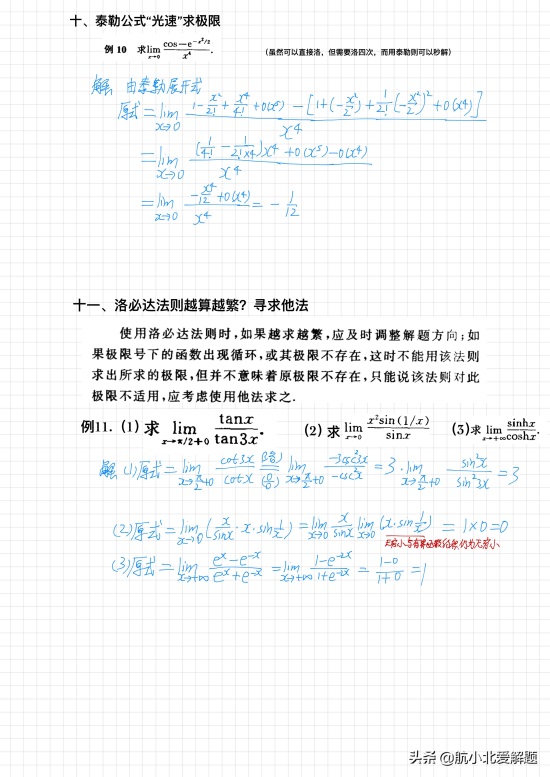 十、泰勒公式“光速”求极限
例 10 求lim x→0 (cos−e^(−x²/2))/x⁴. (虽然可以直接洛，但需要洛四次，而用泰勒则可以秒解)
解 由泰勒展开式
原式=lim x→0 (1−x²/2!+x⁴/4!+o(x⁵)−[1+(−x²/2)+1/2!(−x²/2)²+o(x⁴)])/x⁴
=lim x→0 ((1/4!−1/(2!×4))x⁴+o(x⁵)−o(x⁴))/x⁴
=lim x→0 (−x⁴/12+o(x⁴))/x⁴=−1/12
十一、洛必达法则越算越繁？寻求他法
使用洛必达法则时,如果越求越繁,应及时调整解题方向;如
果极限号下的函数出现循环,或其极限不存在,这时不能用该法则
求出所求的极限,但并不意味着原极限不存在,只能说该法则对此
极限不适用,应考虑使用他法求之.
例11. (1) 求 lim x→π/2+0 tanx/tan3x. (2) 求 lim x→0 x²sin(1/x)/sinx (3)求 lim x→+∞ sinhx/coshx.
解 (1)原式=lim x→π/2+0 cot3x/cotx (0/0)= lim x→π/2+0 −3csc²3x/−csc²x = 3·lim x→π/2+0 sin²x/sin²3x = 3
(2)原式=lim x→0 (x/sinx·x·sin1/x)=lim x→0 x/sinx lim x→0 (x·sin1/x) = 1×0=0
无穷小与有界函数的乘积仍为无穷小
(3)原式=lim x→+∞ (eˣ−e⁻ˣ)/(eˣ+e⁻ˣ) =lim x→+∞ (1−e⁻²ˣ)/(1+e⁻²ˣ) = (1−0)/(1+0) =1
头条 @航小北爱解题